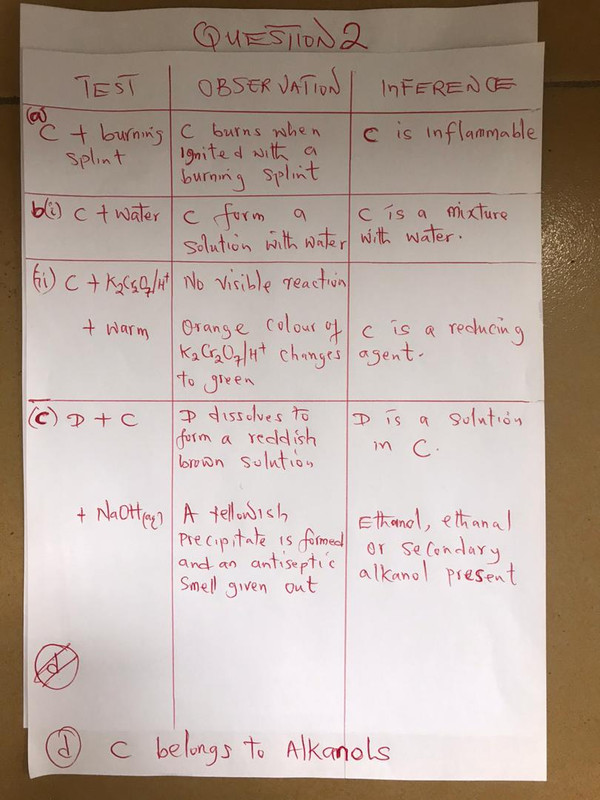 QUESTION 2
TEST OBSERVATION INFERENCE
(a)
C + burning splint
C burns when
ignited with a
burning splint
C is inflammable
b(i) C + water
C form a
solution with water
C is a mixture
with water.
(ii) C + K2Cr2O7/H+
No visible reaction
+ warm
Orange colour of
K2Cr2O7/H+ changes
to green
C is a reducing
agent.
(c) D + C
D dissolves to
form a reddish
brown solution
D is a solution
in C.
+ NaOH(aq)
A Yellowish
precipitate is formed
and an antiseptic
smell given out
Ethanol, ethanal
or secondary
alkanol present
d
(d) C belongs to Alkanols